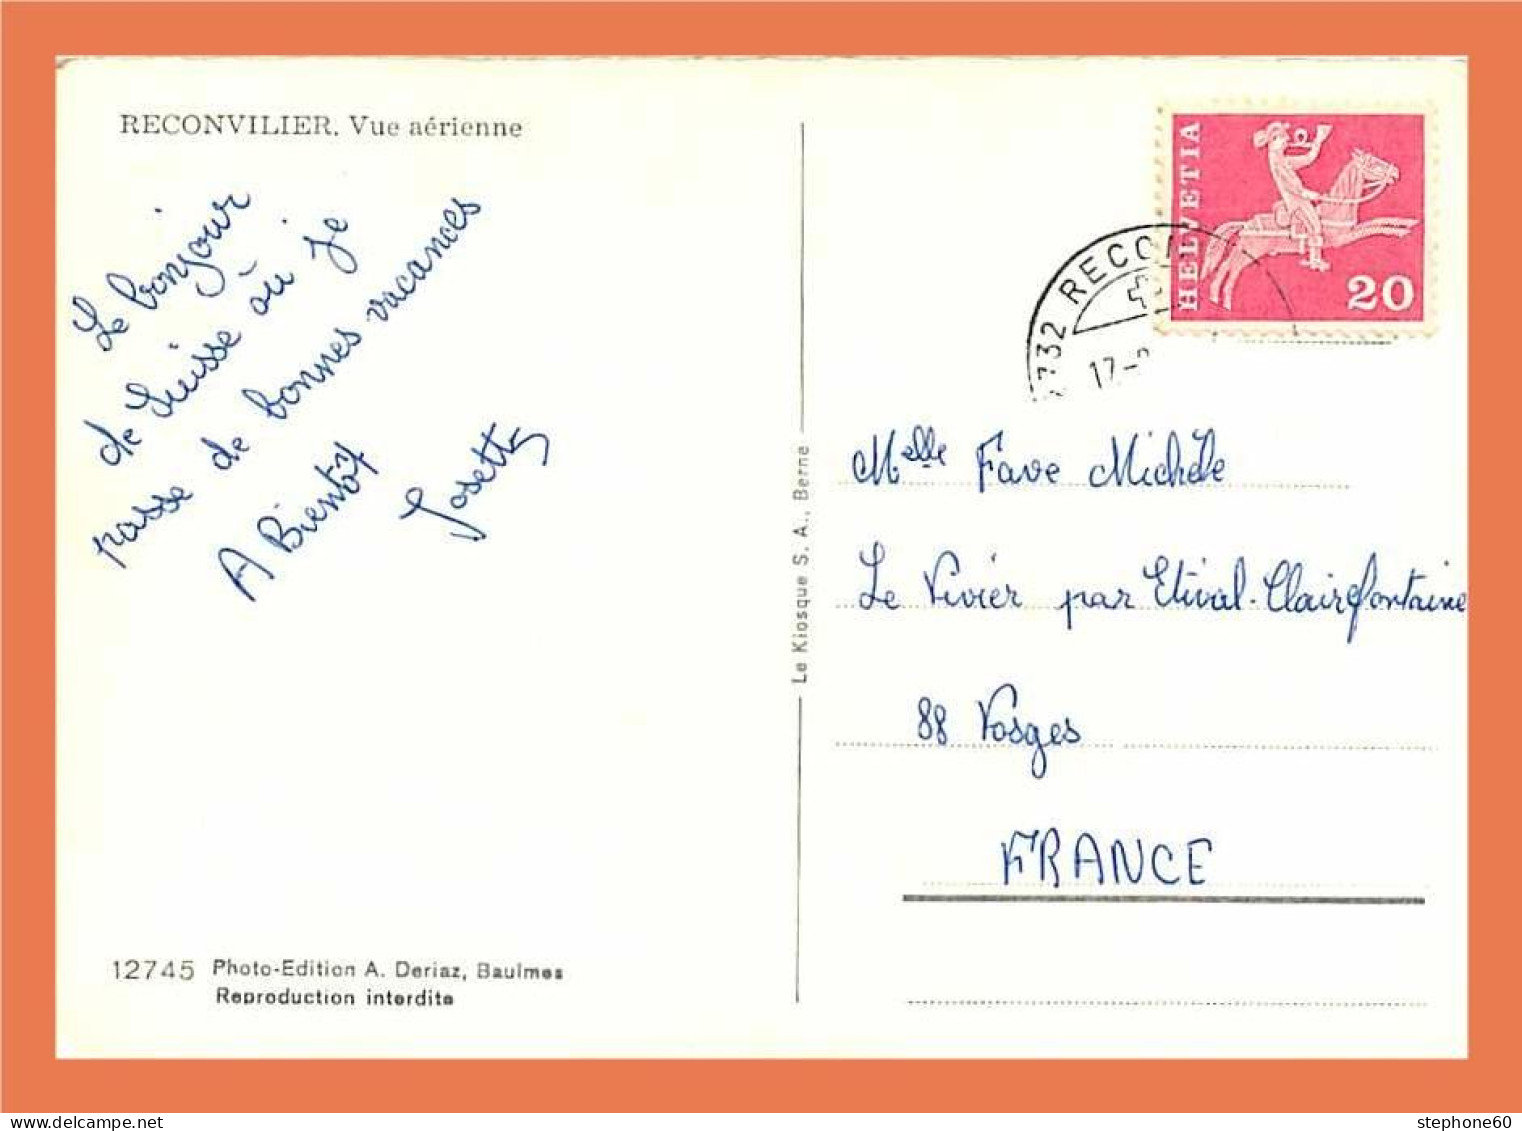 RECONVILIER. Vue aérienne
Le bonjour
de Suisse où je
passe de bonnes vacances
A Bientôt
Josette
12745 Photo-Edition A. Deriaz, Baulmes
Reproduction interdite
Le Kiosque S. A., Berne
HELVETIA
20
2732 RECON
17-
Melle Fave Michèle
Le Vivier par Etival-Clairefontaine
88 Vosges
FRANCE
stephone60